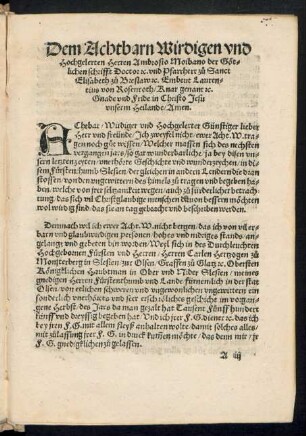 Dem Achtbarn Wirdigen vnd
Hochgelerten Herren Ambrosio Moibano der Göt-
lichen schrifft Doctor ⁊c. vnd Pfarrherr zu Sanct
Elisabeth zu Breslaw ⁊c. Embeut Lauren-
tius von Rosenroth/ Knar genant ⁊c.
Gnade vnd Fride in Christo Jesu
vnserm Heilande/ Amen.
ACHtbar/ Wirdiger vnd Hochgelerter Günstiger lieber
Herr vnd freünde/ Ich zweyfel nicht/ ewer Acht. W. tra-
gen noch güt wissen/ Welcher massen sich des nechsten
vergangen jars/ so gar wunderbarliche/ ja bey disen vn-
sern letzten zeyten/ vnerhörte Geschichte vnd wunderzeychen/ in di-
sem Fürstenthumb Slesien dergleichen in andern Lenden die dan
stossen/ von den vngewittern des himels zu tragen vnd begeben ha-
ben, welche von frer seltzamkeit wegen/ auch zu sünderlicher betrach-
tung, das sich vil Christglaubige menschen daruon bessern möchten
wol wirdig sind/ das sie an tag gebracht vnd beschriben werden.
Dem nach wil ich ewer Acht. W. nicht bergen/ das ich von vil erba-
ren vnd glaubwirdigen personen/ hohes vnd nidriges stands/ an-
gelangt vnd gebeten bin worden/ Weyl sich in des Durchleuchten
Hochgebornen Fürsten vnd Herren/ Herren Carlen Hertzogen zu
Monsterberg in Slesien zur Olsen/ Graffen zu Glatz ⁊c. Obersten
Königklichen Haubtman in Ober vnd Nider Slesien/ meines
gnedigen Herren Fürstenthumb vnd Lande fürnemlich in der stat
Olsen/ vor etzlichen schawren vnd vngestümen vngewittern ein
sonderlich vnerhörte vnd seer erschröcliche geschicht im vorgan-
gene Herbst des Jars da man gezalt hat Tausent Fünff hundert
fünff vnd dreyssig begeben hat. Vnd ich jrer F. G. diener ⁊c. das ich
bey jrer F. G. mit allem fleyß anhalten wolte/ damit solches alles/
mit zulassung jrer F. G. in druck kummen möchte/ das denn mir/ jr
F. G. gnedigklichen zugelassen.
A iij